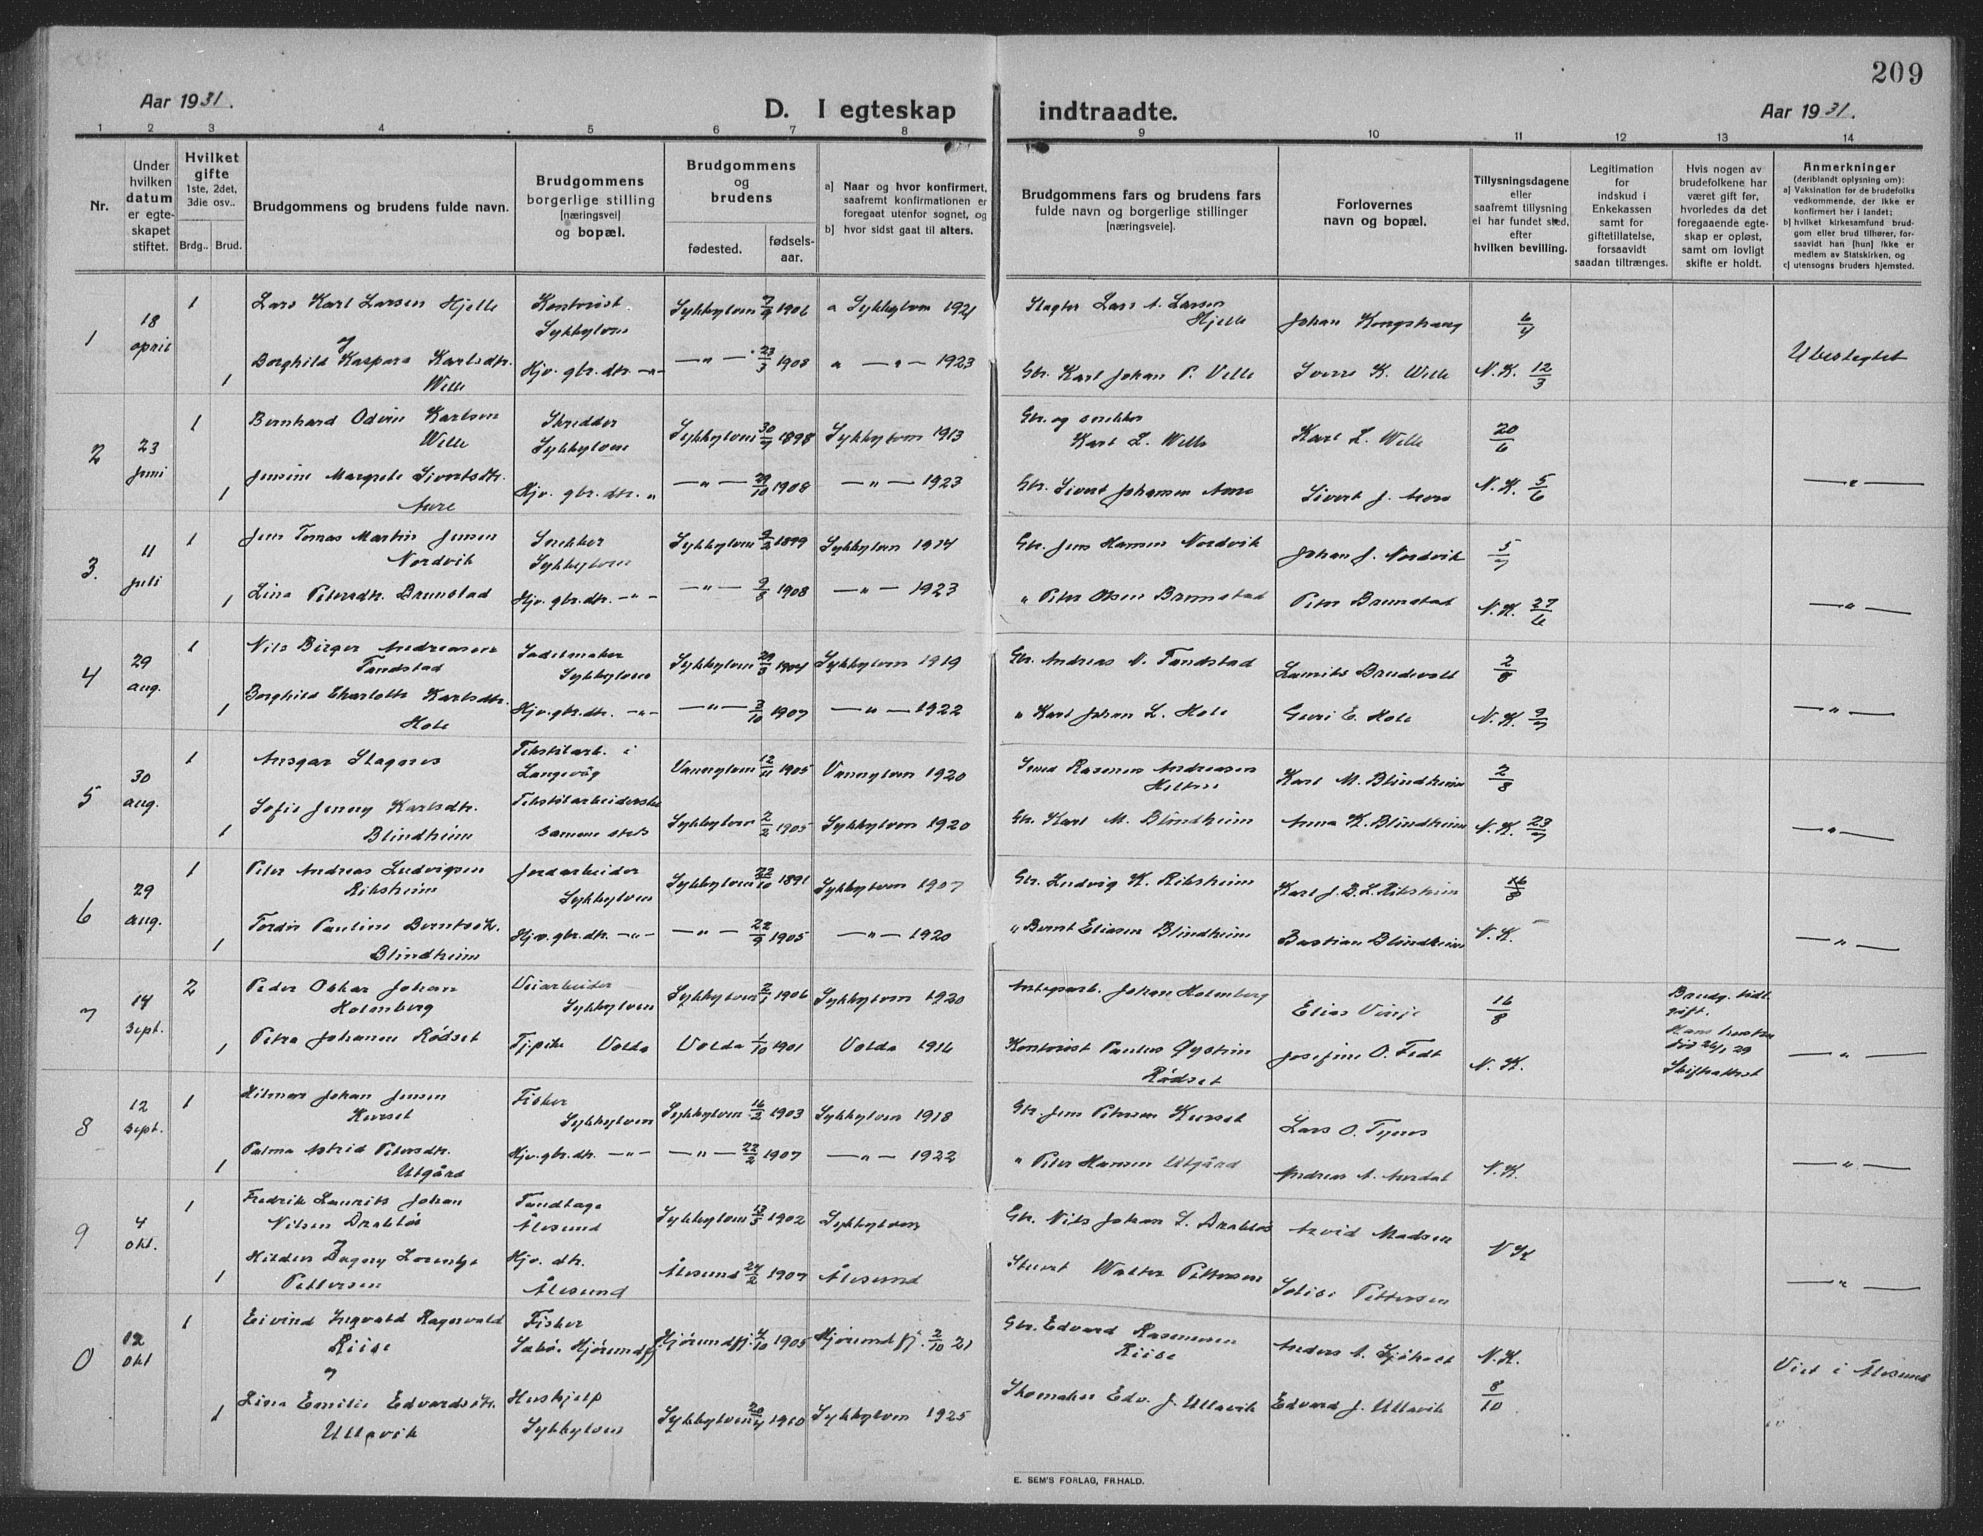 209
Aar 1931.
D. I egteskap indtraadte.
Aar 1931.
1 2 3 4 5 6 7 8 9 10 11 12 13 14
Nr.
Under hvilken datum er egteskapet stiftet.
Hvilket gifte 1ste, 2det, 3die osv..
Brdg.. Brud.
Brudgommens og brudens fulde navn.
Brudgommens borgerlige stilling [næringsvei] og bopæl.
Brudgommens og brudens
fødested. fødselsaar.
a] Naar og hvor konfirmert, saafremt konfirmationen er foregaat utenfor sognet, og
b] hvor sidst gaat til alters.
Brudgommens fars og brudens fars fulde navn og borgerlige stillinger [næringsveie].
Forlovernes navn og bopæl.
Tillysningsdagene eller saafremt tillysning ei har fundet sted, efter hvilken bevilling.
Legitimation for indskud i Enkekassen samt for giftetillatelse, forsaavidt saadan tiltrænges.
Hvis nogen av brudefolkene har været gift før, hvorledes da det foregaaende egteskap er opløst, samt om lovligt skifte er holdt.
Anmerkninger (deriblandt oplysning om):
a) Vaksination for de brudefolks vedkommende, der ikke er konfirmert her i landet;
b) hvilket kirkesamfund brudgom eller brud tilhører, forsaavidt han [hun] ikke er medlem av Statskirken, og
c) utensogns bruders hjemsted.
1 18 april
1 Lars Karl Larsen Hjelle Kontorist Sykkylven Sykkylven 7/9 1906 a Sykkylven 1921 Slagter Lars A. Larsen Hjelle Johan Kongshaug 6/4
og
1 Borghild Kaspara Karlsdtr. Welle Hjv. gbr.dtr. —"— —"— 23/3 1908 a —"— 1923 Gbr. Karl Johan P. Velle Sverre K. Welle N.K. 12/3 Ubeslegtet
2 23 juni
1 Bernhard Odvin Karlsen Welle Skredder Sykkylven Sykkylven 30/9 1898 Sykkylven 1913 Gbr. og snekker Karl L. Welle Karl L. Welle 20/6
1 Jensine Margrete Sivertsdtr. Aure Hjv. gbr.dtr. " —"— 29/10 1908 —"— 1923 Gbr. Sivert Johansen Aure Sivert J. Aure N.K. 5/6 —"—
3. 11 juli
1 Jens Tomas Martin Jensen Nordvik Snekker Sykkylven Sykkylven 9/2 1899 Sykkylven 1914 Gbr. Jens Hansen Nordvik Johan J. Nordvik 5/7
1 Lina Petersdtr. Brunstad Hjv. gbr.dtr. —"— —"— 9/8 1908 —"— 1923 " Peter Olsen Brunstad Peter Brunstad N.K. 27/6 —"—
4 29 aug.
1 Nils Birger Andreassen Tandstad Sadelmaker Sykkylven Sykkylven 29/3 1904 Sykkylven 1919 Gbr. Andreas N. Tandstad Laurits Brudevoll 2/8
1 Borghild Charlotte Karlsdtr. Hole Hjv. gbr.dtr. —"— —"— 3/10 1907 —"— 1922 " Karl Johan L. Hole Guri E. Hole N.K. 9/7 —"—
5 30 aug.
1 Ansgar Slagnes Tekstilarb. i Langevåg Vannylven 12/11 1905 Vannylven 1920 Smed Rasmus Andreasen Karl M. Blindheim 2/8
1 Sofie Jenny Karlsdtr. Blindheim Tekstilarbeiderske samme sted Sykkylven 2/2 1905 Sykkylven 1920 Gbr. Karl M. Blindheim Anna K. Blindheim N.K. 23/7 —"—
6 29 aug.
1 Peter Andreas Ludvigsen Riksheim Jordarbeider Sykkylven Sykkylven 22/10 1891 Sykkylven 1907 Gbr. Ludvig K. Riksheim Karl J. B. L. Riksheim 16/8
1 Tordis Pauline Berntsdtr. Blindheim Hjv. gbr.dtr. —"— —"— 22/9 1905 —"— 1920 " Bernt Eliasen Blindheim Bastian Blindheim N.K. —"—
7 14 sept.
2 Peder Oskar Johan Holmberg Veiarbeider Sykkylven Sykkylven 2/1 1906 Sykkylven 1920 Anlegsarb. Johan Holmberg Elias Vinje 16/8 Brudg. tidl. gift.
1 Petra Johanne Rødset Tjpike Volda Volda 1/10 1901 Volda 1916 Kontorist Paulus Øystein Rødset Josefine O. Fedt N.K. Hans hustru død 26/1 29 Skifteattest —"—
8 12 sept.
1 Hilmar Johan Jensen Kurset Fisker Sykkylven Sykkylven 16/2 1903 Sykkylven 1918 Gbr. Jens Petersen Kurset Lars O. Tynes
1 Palma Astrid Petersdtr. Utgård Hjv. gbr.dtr. —"— —"— 22/2 1907 —"— 1922 " Peter Hansen Utgård Andreas A. Aurdal N.K. —"—
9 4 okt.
1 Fredrik Laurits Johan Nilsen Drabløs Tandlæge Ålesund Sykkylven 13/5 1902 Sykkylven Gbr. Nils Johan L. Drabløs Arvid Madsen
og
1 Dagny Pettersen Hjv. dtr. Ålesund Ålesund 24/2 1907 Ålesund Stuert Walter Pettersen Pettersen N.K. —"—
0 12 okt
1 Eivind Ingvald Ragnvald Riise Fisker Sæbø Hjørundfj. Hjørundfj. 4/10 1905 Hjørundfj. 2/10 21 Gbr. Edvard Rasmussen Riise Anders A. Sjøholt N.K.
og
1 Lina Emilie Edvardsdtr. Ullavik Hushjelp Sykkylven Sykkylven 20/4 1910 Sykkylven 1925 Skomaker Edv. J. Ullavik Edvard J. Ullavik 8/10 Viet i Ålesund
E. SEM'S FORLAG, FR.HALD.